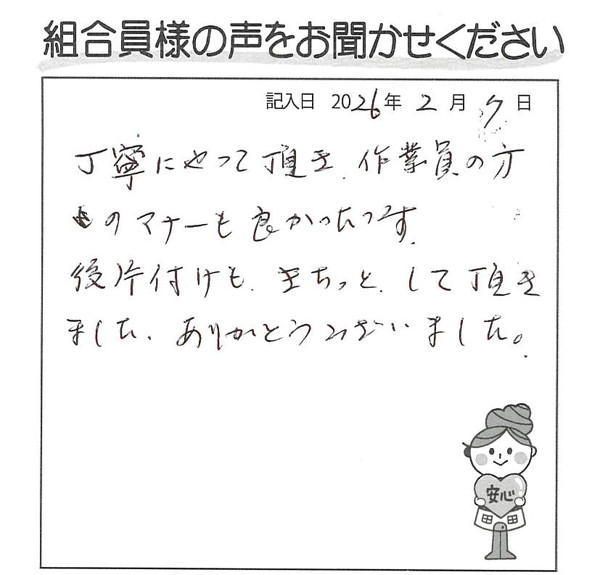 組合員様の声をお聞かせください
記入日 2026年 2月 7日
丁寧にやって頂き、作業員の方
のマナーも良かったです。
後片付けも、きちっと、して頂き
ました、ありがとうございました。
安心